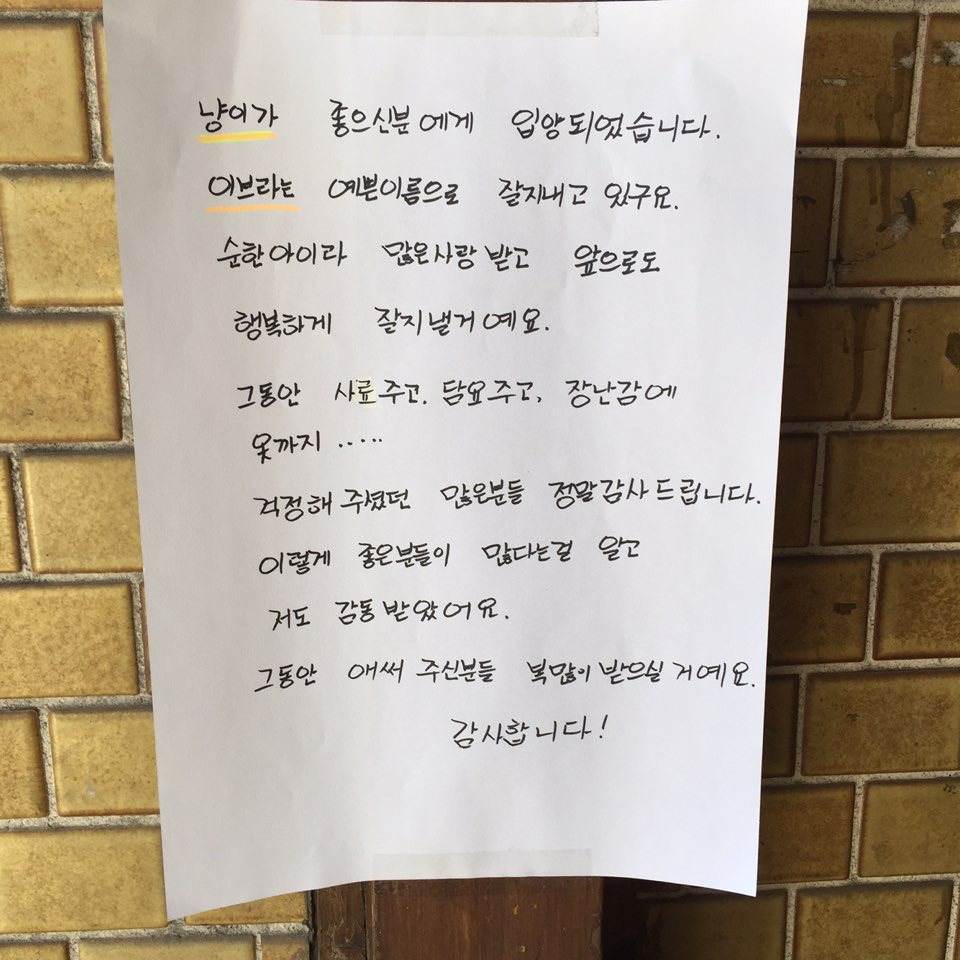 냥이가 좋으신분에게 입양되었습니다.
이브라는 예쁜이름으로 잘지내고 있구요.
순한아이라 많은사랑받고 앞으로도
행복하게 잘지낼거예요.
그동안 사료주고. 담요주고, 장난감에
옷까지 .....
걱정해 주셨던 많은분들 정말감사드립니다.
이렇게 좋은분들이 많다는걸 알고
저도 감동받았어요.
그동안 애써 주신분들 복많이 받으실 거예요.
감사합니다!